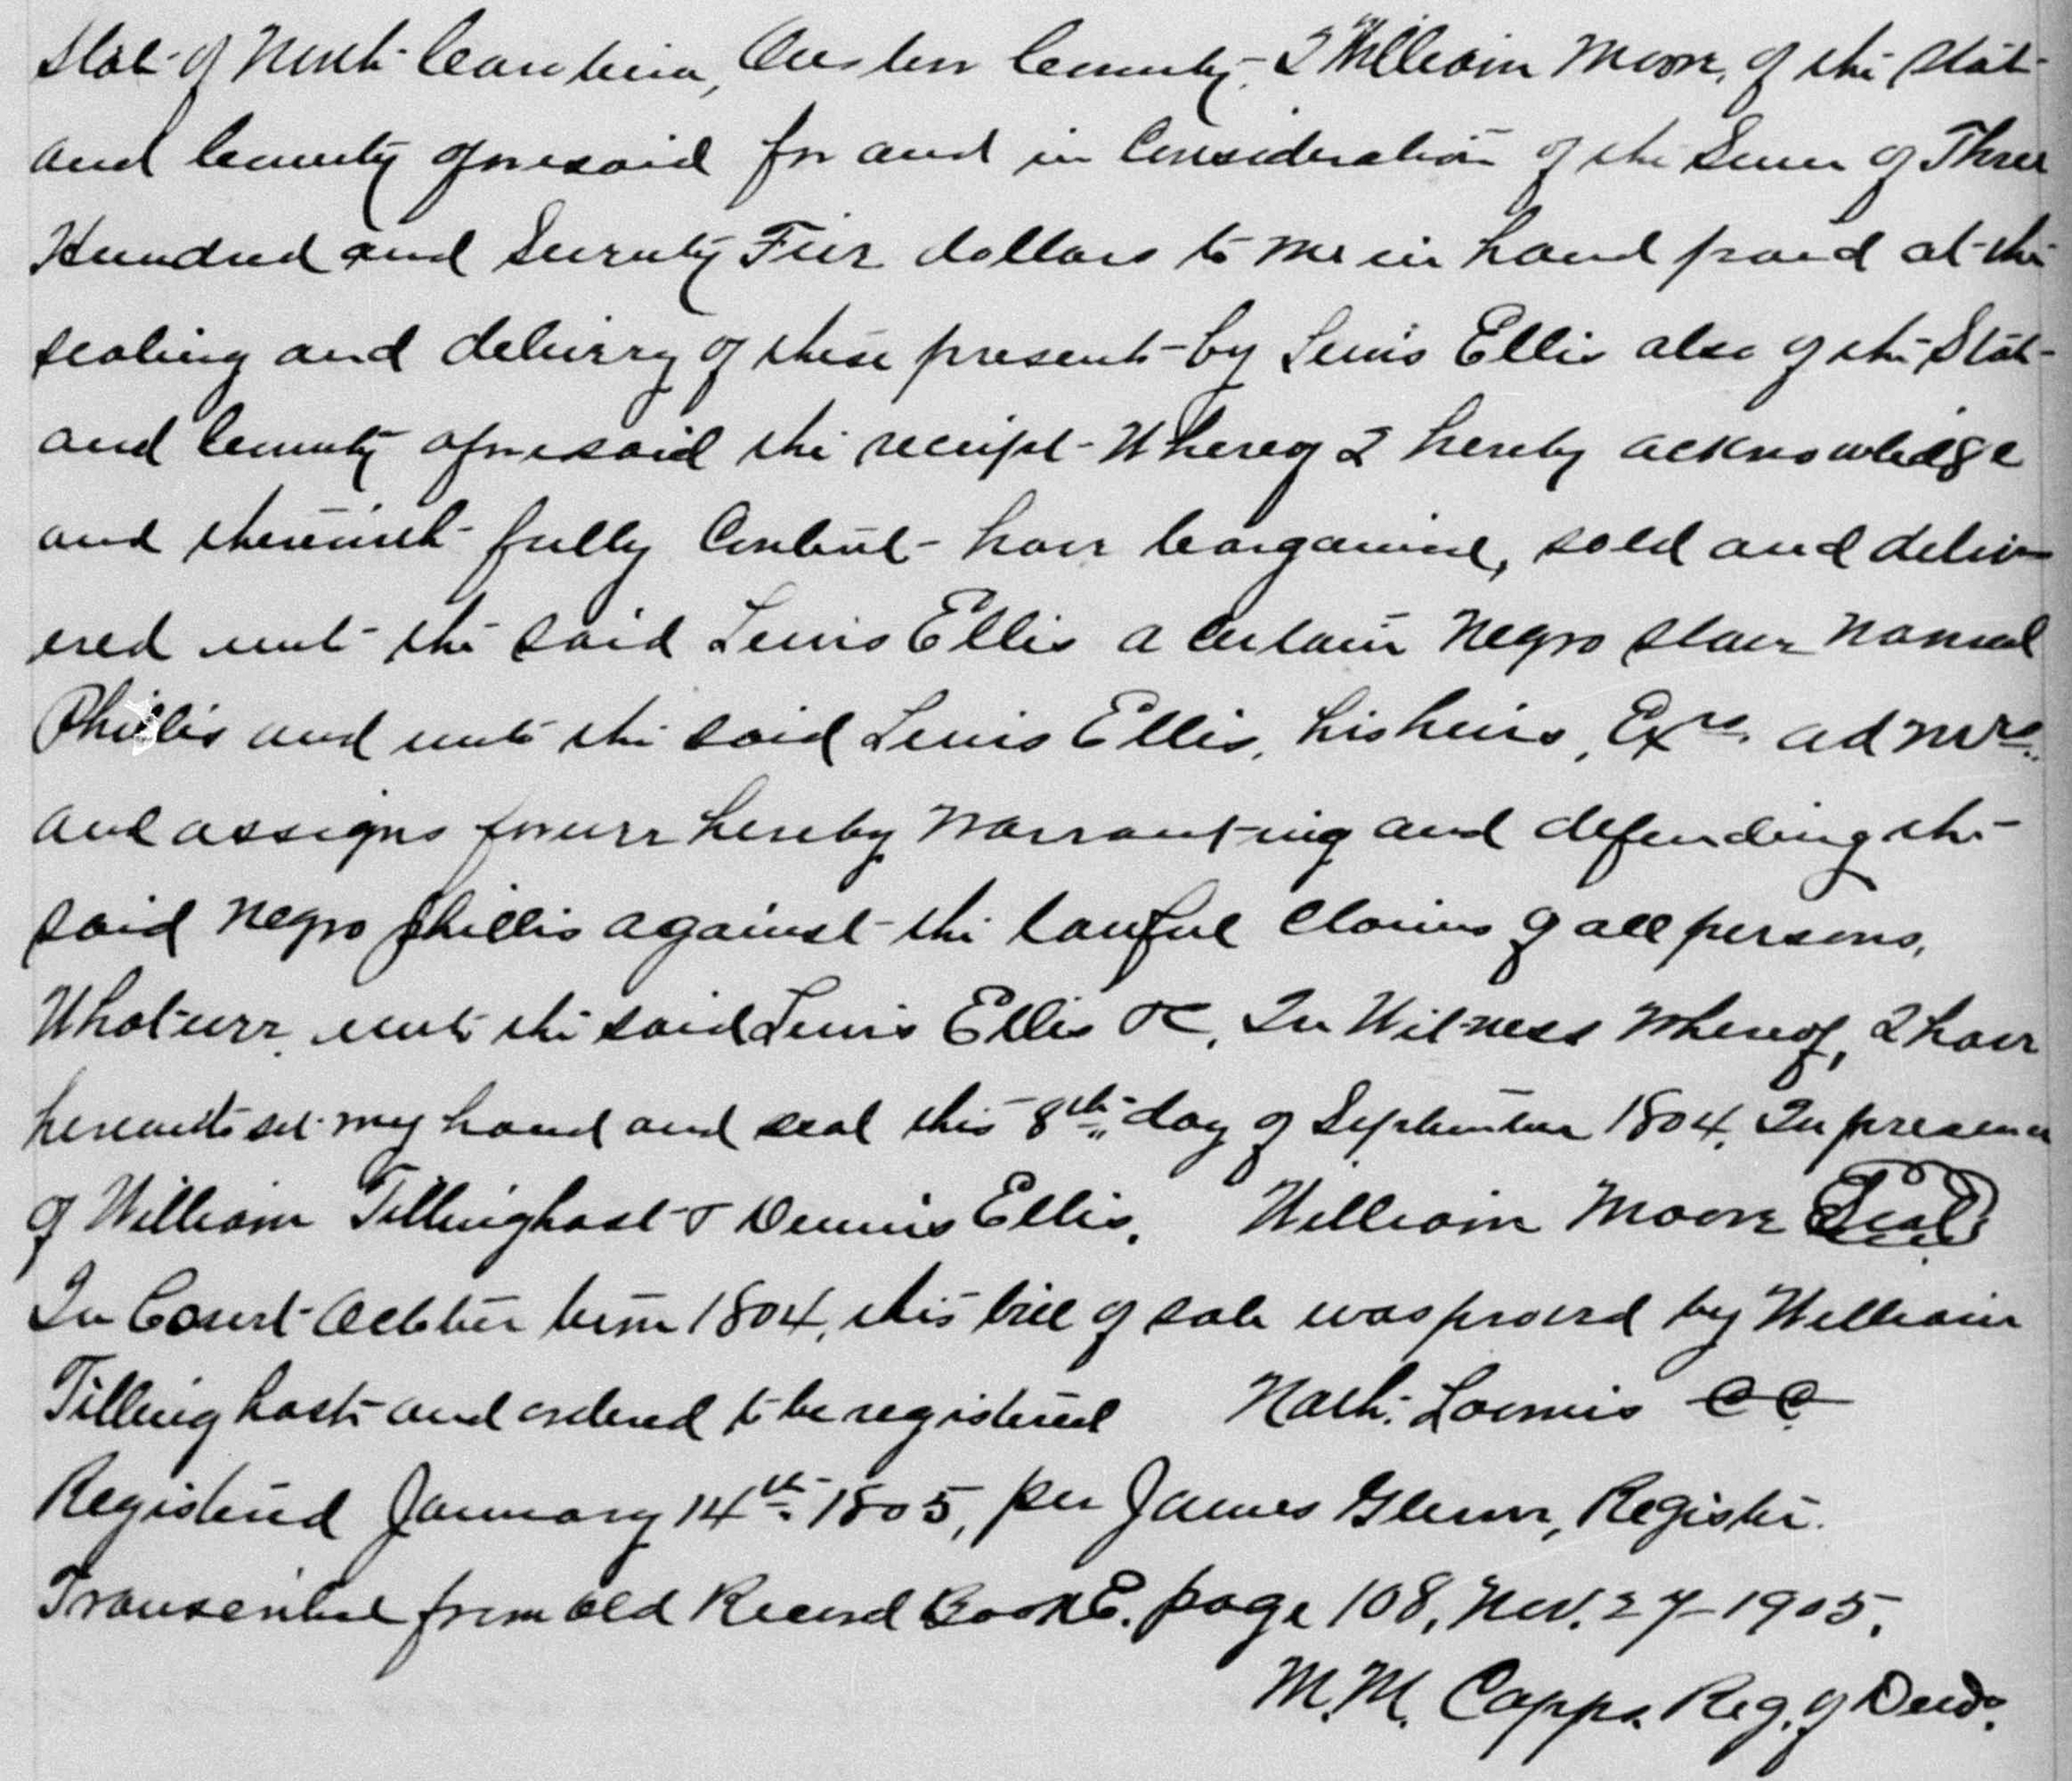 State of North Carolina, Onslow County, I William Moore, of the State
and County aforesaid for and in Consideration of the Sum of Three
Hundred and Seventy Five dollars to me in hand paid at the
sealing and delivery of these presents by Lewis Ellis also of the State
and County aforesaid the receipt whereof I hereby acknowledge
and therewith fully Content have bargained, sold and deliv
ered unto the said Lewis Ellis a certain Negro slave named
Phillis and unto the said Lewis Ellis, his heirs, Exrs. admrs.
and assigns forever hereby warranting and defending the
said negro phillis against the lawful claims of all persons,
Whatever unto the said Lewis Ellis &C, In Witness whereof, I have
hereunto set my hand and seal this 8th day of September 1804. In presence
of William Tillinghast & Dennis Ellis. William Moore Seal
In Court October term 1804, this bill of sale was proved by William
Tillinghast and ordered to be registered Nath: Loomis CC.
Registered January 14th 1805, per James Glenn, Register.
Transcribed from old Record Book E. page 108, Nov. 27-1905.
M. M. Capps. Reg. of Deeds.